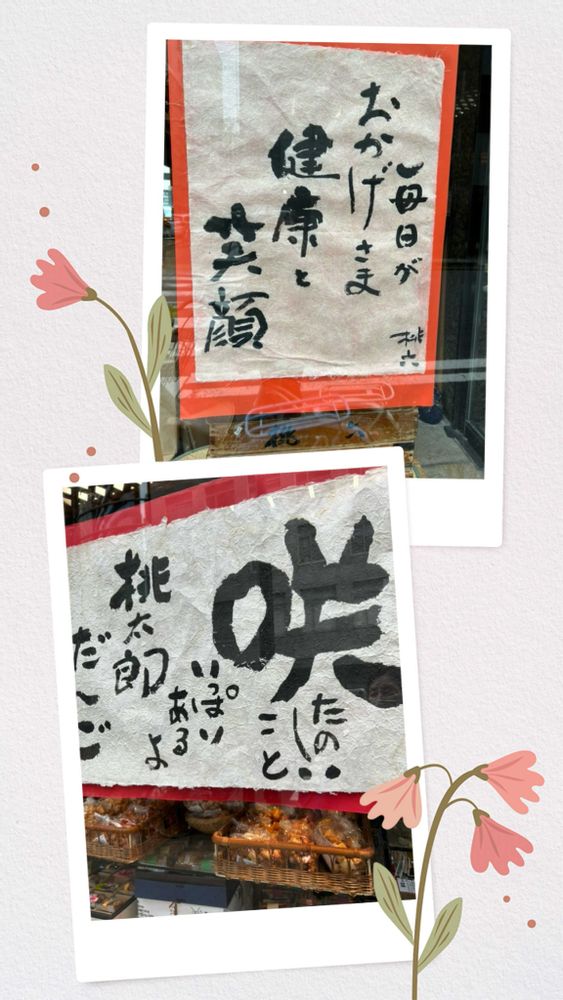 毎日が
おかげさま
健康と
笑顔
桃六
桃
咲
たのしい
こと
いっぱい
あるよ
桃太郎
だんご